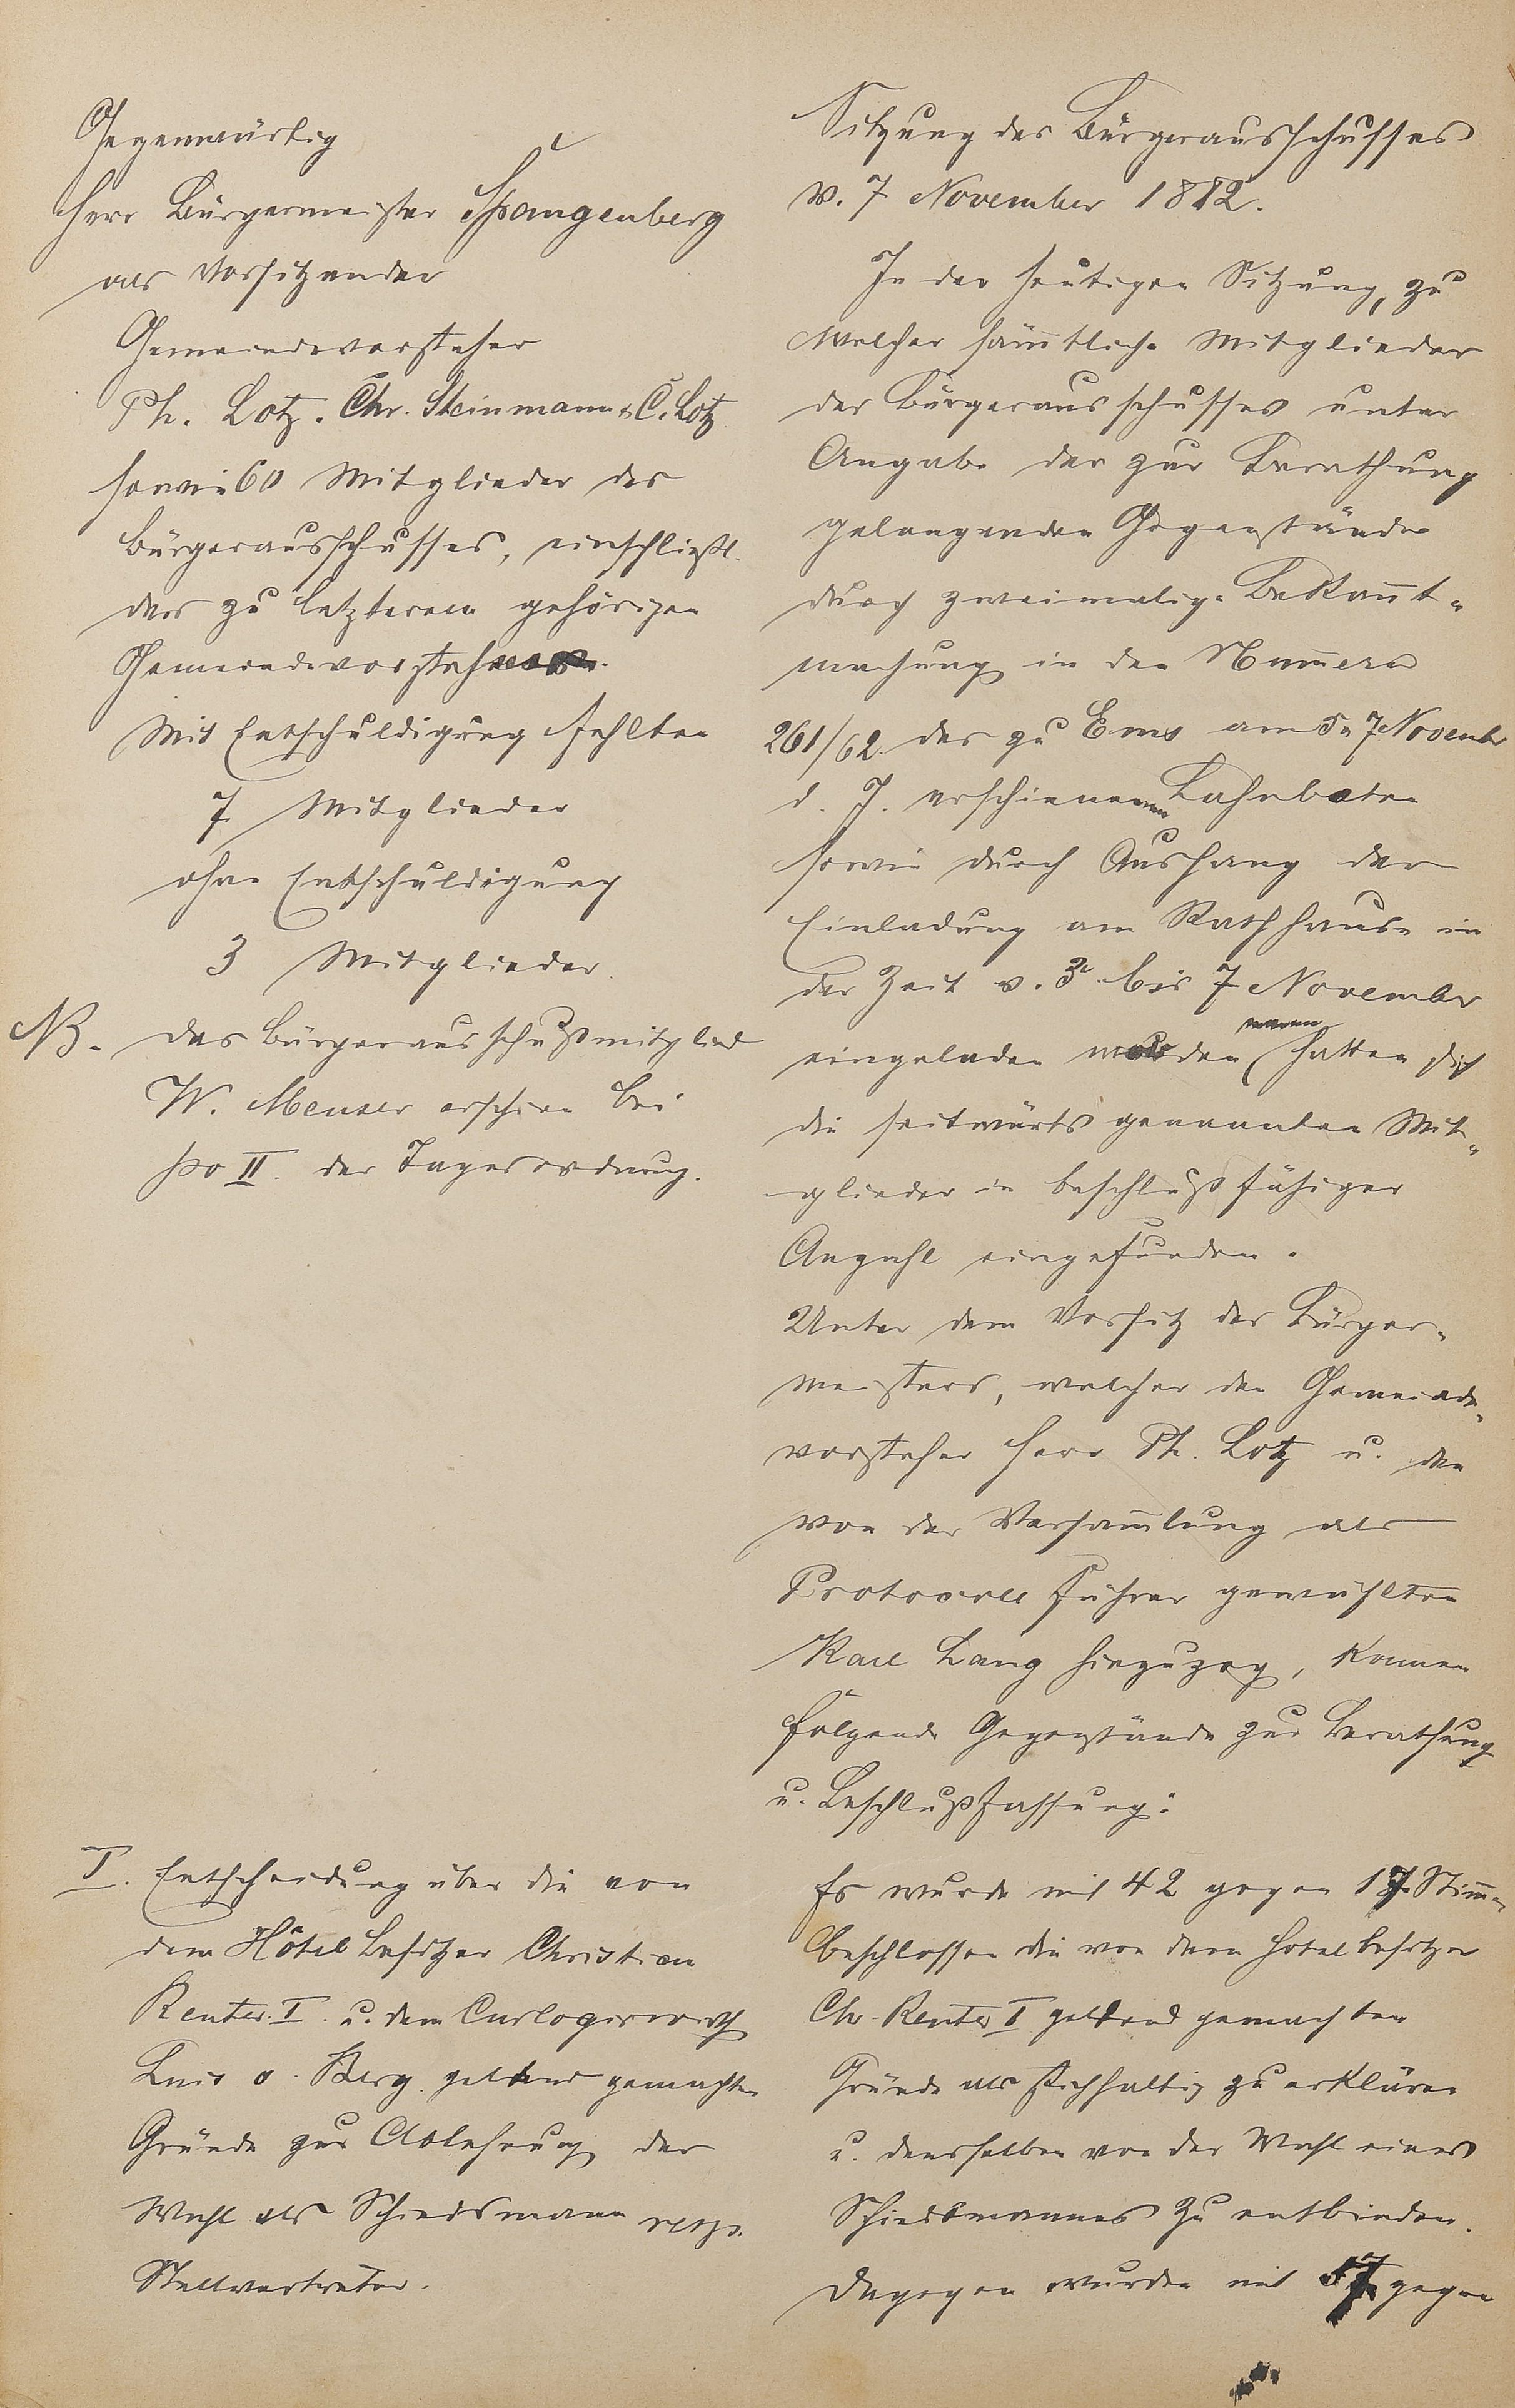 Gegenwärtig
Herr Bürgermeister Spangenberg
als Vorsitzender
Gemeindevorsteher
Ph. Lotz. Chr. Steinmann & C. Lotz
sowie 60 Mitglieder des
Bürgerausschusses, einschließl.
der zu letzterem gehörigen
Gemeindevorsteher
Mit Entschuldigung fehlten
7 Mitglieder
ohne Entschuldigung
3 Mitglieder.
NB. Das Bürgerausschußmitglied
W. Meuser erschien bei
pos II. der Tagesordnung.
I. Entscheidung über die von
dem Hôtel Besitzer Christian
Reuter I. u. dem Curlogirwirth
Luis v. Berg geltend gemachten
Gründe zur Ablehnung der
Wahl als Schiedsmann resp.
Stellvertreter.
Sitzung des Bürgerausschusses
v. 7 November 1882.
In der heutigen Sitzung, zu
welcher säm̅tliche Mitglieder
des Bürgerausschusses unter
Angabe der zur Berathung
gelangenden Gegenstände
durch zweimalige Bekan̅t-
machung in den Num̅ern
261/62 des zu Ems am 5 u 7 Novemb
d. J. erschienenen Lahnboten
sowie durch Aushang der
Einladung am Rathhause in
der Zeit v. 3 bis 7 November
eingeladen worden waren, hatten sich
die seitwärts genannten Mit-
glieder in beschlußfähiger
Anzahl eingefunden.
Unter dem Vorsitz des Bürger-
meisters, welcher den Gemeinde-
vorsteher Herr Ph. Lotz u. den
von der Versam̅lung als
Protocollführer gewählten
Karl Lang hinzuzog, kamen
folgende Gegenstände zur Berathung
u. Beschlußfassung:
Es wurde mit 42 gegen 17 Stim̅en
beschlossen die von dem Hotelbesitzer
Chr. Reuter I geltend gemachten
Gründe als stichhaltig zu erklären
u. denselben von der Wahl eines
Schiedsmannes zu entbinden.
Dagegen wurden mit 57 gegen